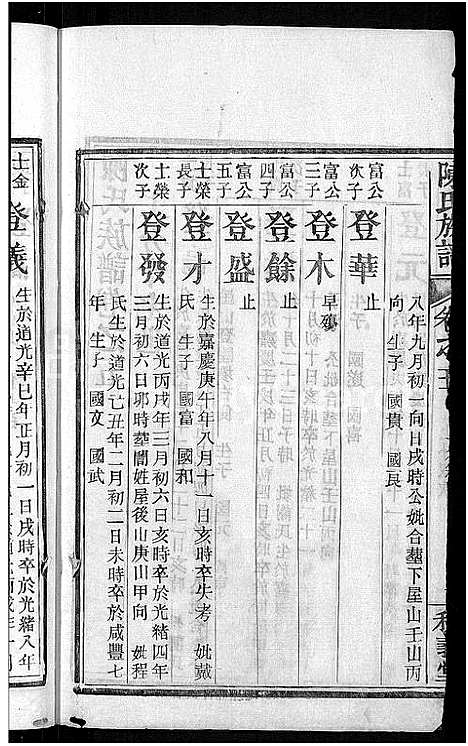 陳氏族譜
八年九月初一向日戌時公妣合塟下屋山壬山丙
向 生子 國貴 國良
富公次子 登華 止
富公三子 登木 早殀
富公四子 登餘 止
富公五子 登盛 止
士榮長子 登才 生於嘉慶庚午年八月十一日亥時卒失考 妣戴
氏 生子 國富 國和
士榮次子 登發 生於道光丙戌年三月初六日亥時卒於光緒四年
三月初六日卯時塟誾姓屋後山庚山甲向 妣程
氏生於道光己丑年二月初二日未時卒於咸豐七
年 生子 國文 國武
士金 登義 生於道光辛巳年正月初一日戌時卒於光緒八年